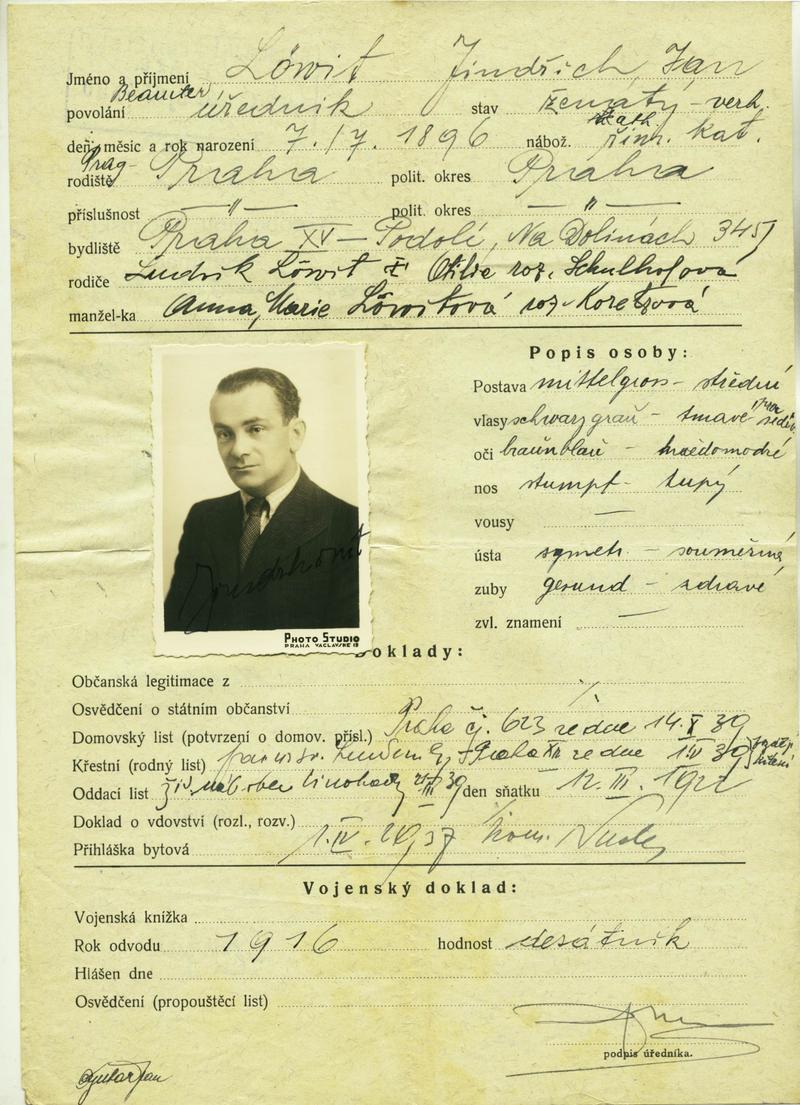 Jméno a příjmení Löwit Jindřich, Jan
Beamter
povolání úředník stav ženatý - verh.
kath.
den, měsíc a rok narození 7./7. 1896 nábož. řím. kat.
Prag-
rodiště Praha polit. okres Praha
příslušnost — " — polit. okres — " —
bydliště Praha XV — Podolí, Na Dolinách 345
rodiče Ludvík Löwit Otilie roz. Schulhofová
manžel-ka Anna, Marie Löwitová roz.
Popis osoby:
Postava mittelgross - střední
vlasy schwarzgrau - tmavé
oči braunblau - hnědomodré
nos stumpf - tupý
vousy —
ústa symetr. - souměrná
zuby gesund - zdravé
zvl. znamení —
PHOTO STUDIO
PRAHA VACLAVSKÉ
oklady:
Občanská legitimace z
Osvědčení o státním občanství
Domovský list (potvrzení o domov. přísl.) Praha čj. 623 ze dne 14. X 39
Křestní (rodný list) Praha XII ze dne 1. IV 39
Oddací list den sňatku 12. III.
Doklad o vdovství (rozl., rozv.)
Přihláška bytová 1. IV. 37 kom. Nusle
Vojenský doklad:
Vojenská knížka
Rok odvodu 1916 hodnost desátník
Hlášen dne
Osvědčení (propouštěcí list)
podpis úředníka.